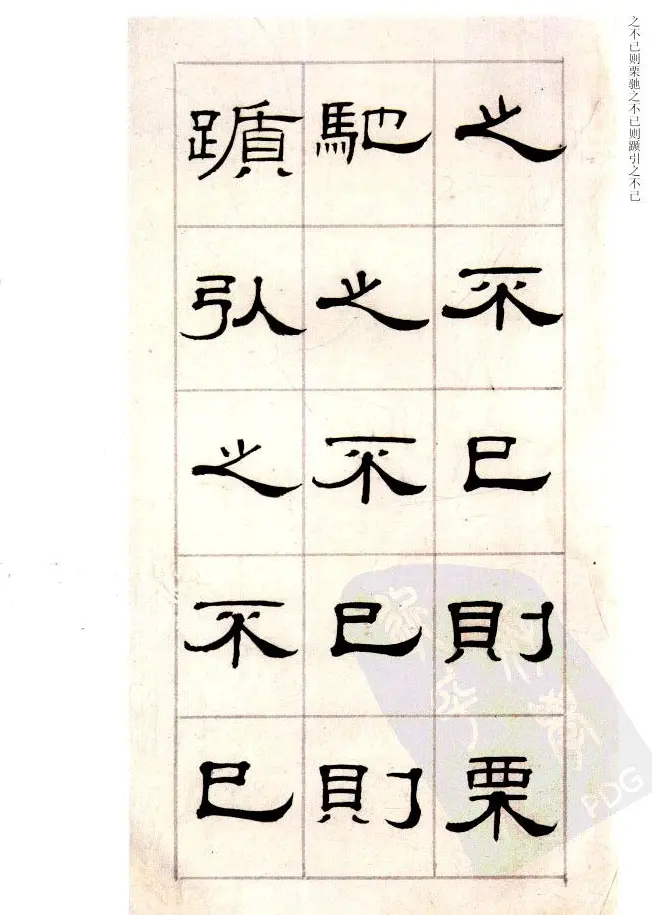 之不已则栗驰之不已则踬引之不已
之不已則栗
馳之不已則
躓引之不已
PDG